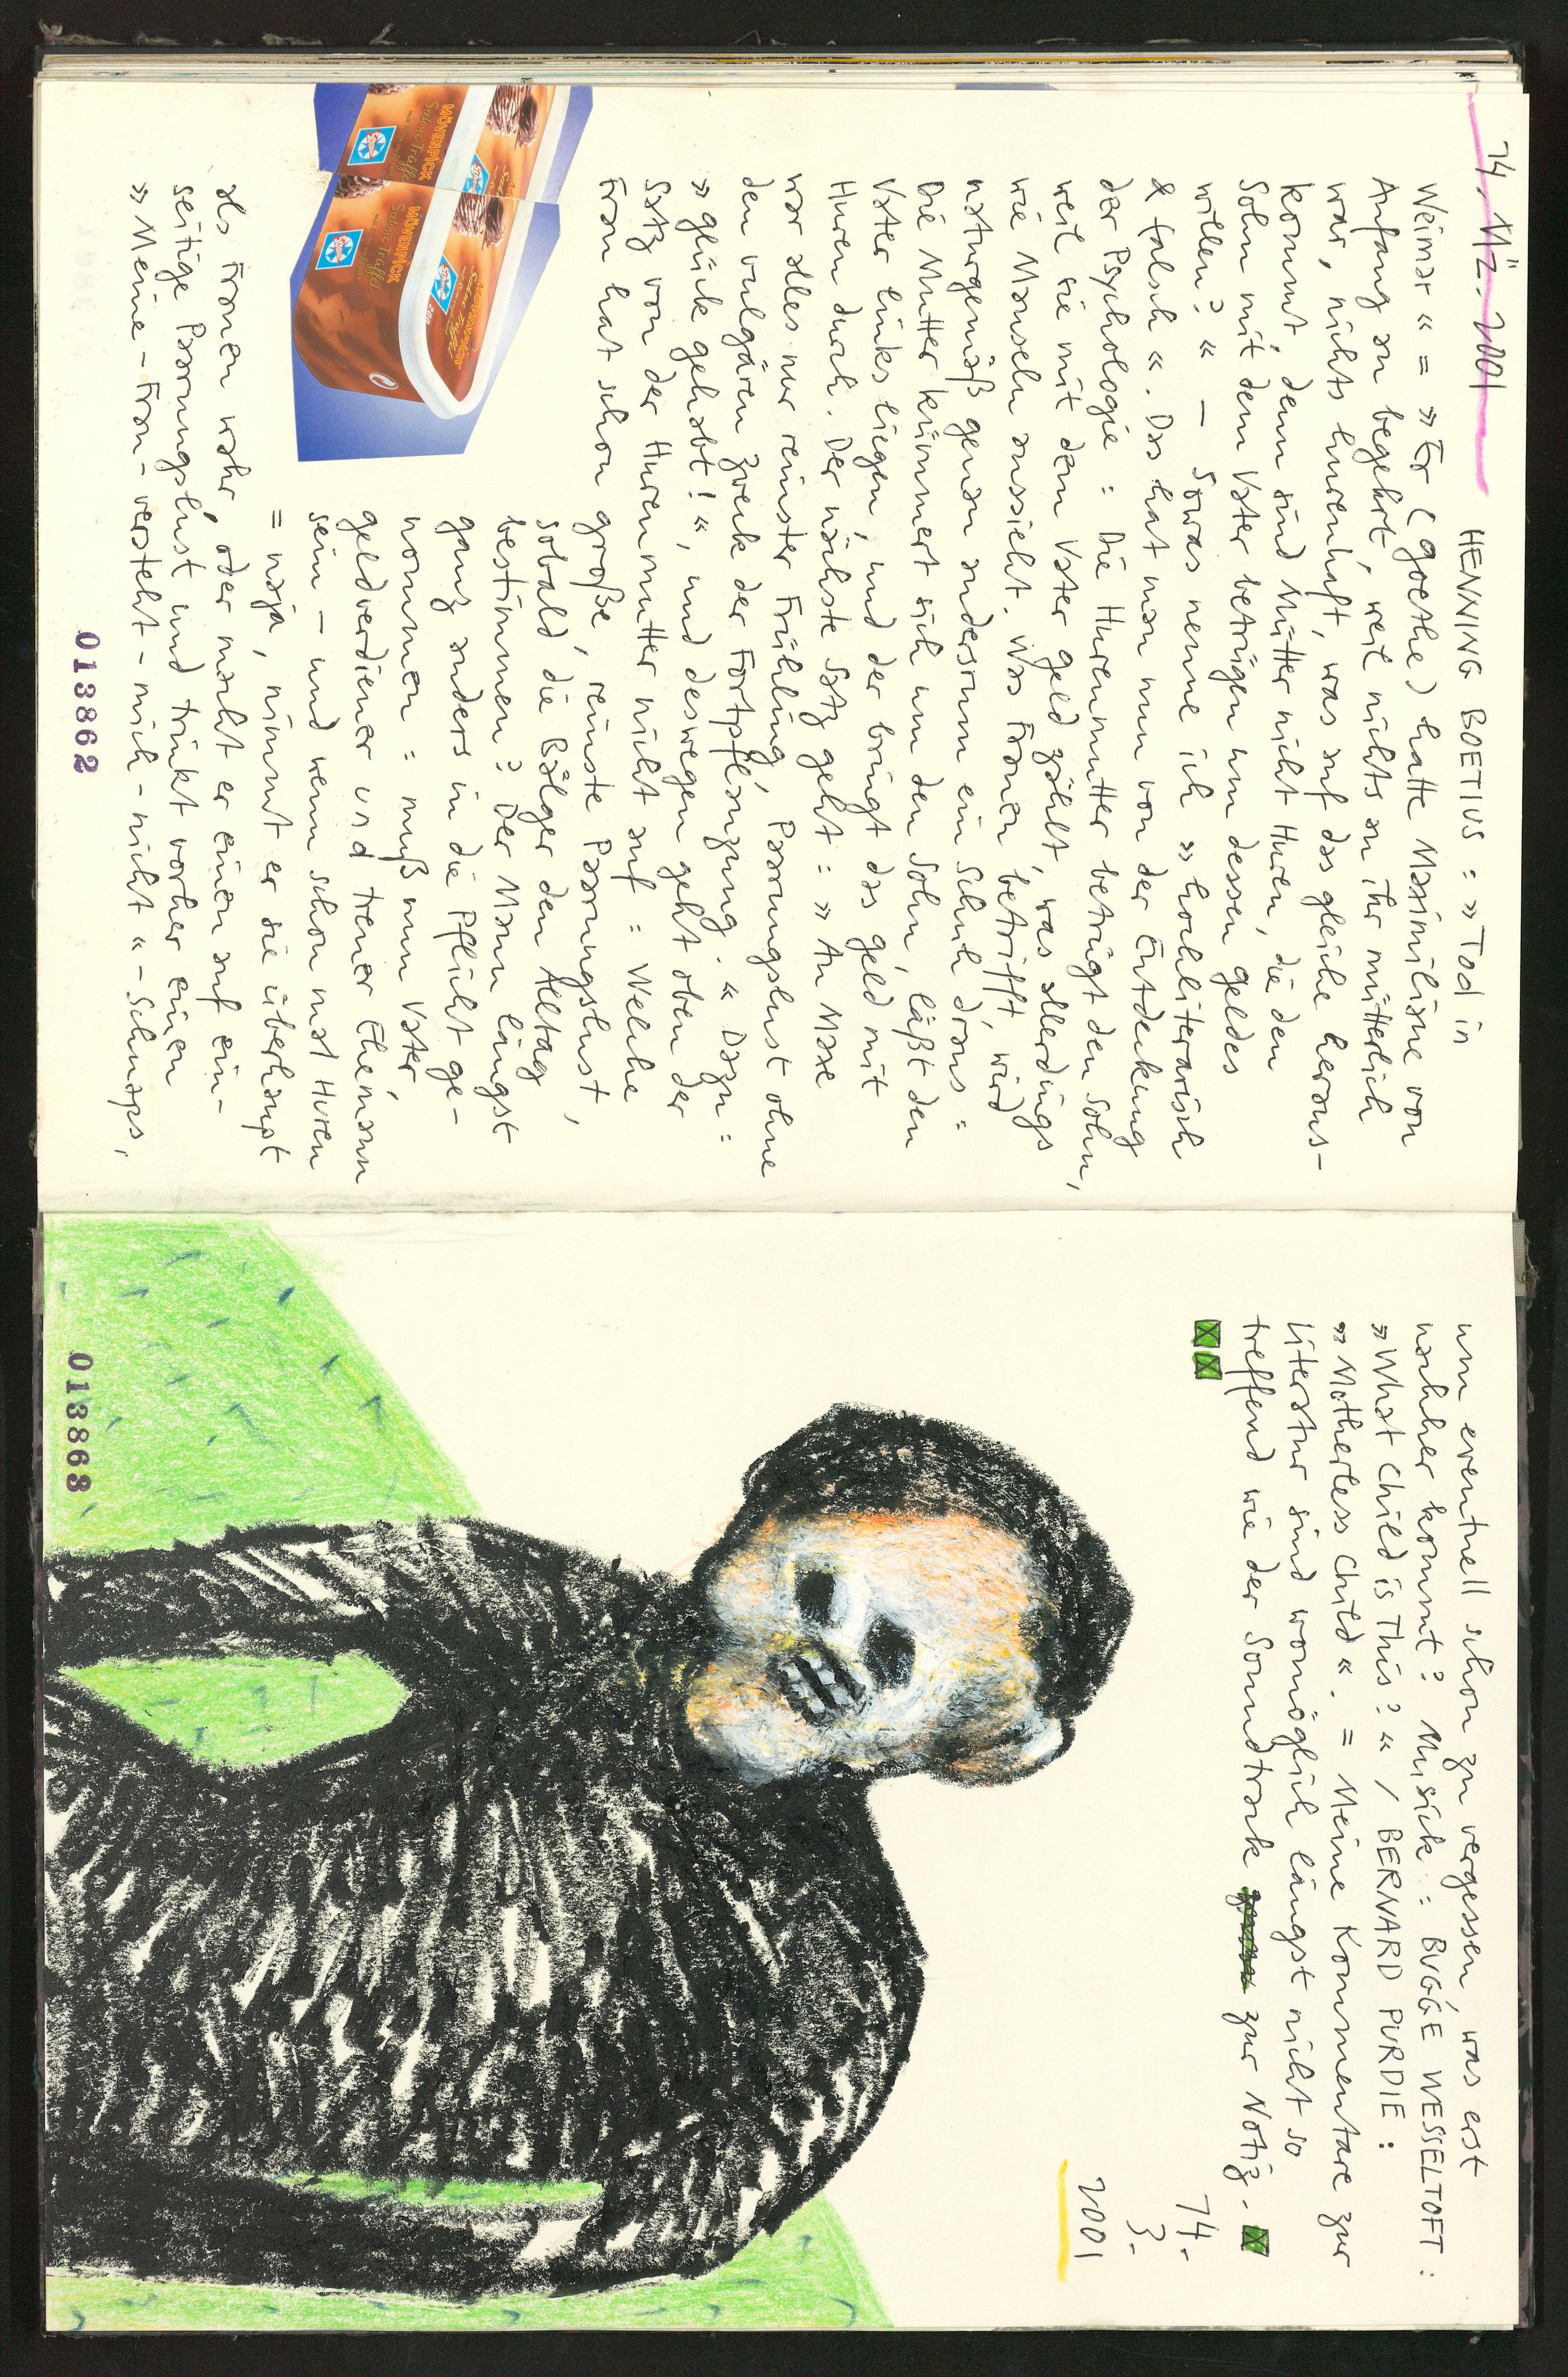 14. MZ. 2001
HENNING BOETIUS : » Tod in
Weimar « = » Er ( Goethe ) hatte Maximiliane von
Anfang an begehrt, weil nichts an ihr mütterlich
war, nichts hurenhaft, was auf das gleiche heraus-
kommt, denn sind Mütter nicht Huren, die den
Sohn mit dem Vater betrügen um dessen Geldes
willen? « — Sowas nenne ich » hochliterarisch
& falsch «. Das hat man nun von der Entdeckung
der Psychologie : Die Hurenmutter betrügt den Sohn,
weil sie mit dem Vater Geld zählt, was allerdings
wie Mauscheln aussieht. Was Frauen betrifft, wird
naturgemäß genau andersrum ein Schuh draus =
Die Mutter kümmert sich um den Sohn, läßt den
Vater links liegen, und der bringt das Geld mit
Huren durch. Der nächste Satz geht : » An Maxe
war alles nur reinster Frühling, Paarungslust ohne
den vulgären Zweck der Fortpflanzung. « Dazu =
» Glück gehabt! «, und deswegen geht oben der
Satz von der Hurenmutter nicht auf = Welche
Frau hat schon große, reinste Paarungslust,
sobald die Bälger den Alltag
bestimmen? Der Mann längst
ganz anders in die Pflicht ge-
nommen = muß nun Vater,
Geldverdiener und treuer Ehemann
sein — und wenn schon mal Huren
= naja, nimmt er sie überhaupt
als Frauen wahr, oder macht er einen auf ein-
seitige Paarungslust und trinkt vorher einen
» Meine - Frau - versteht - mich - nicht « - Schnaps,
MÖVENPICK
Sahne Trüffel
MÖVENPICK
Sahne Trüffel
013862
um eventuell schon zu vergessen, was erst
nachher kommt? Musick : BUGGE WESSELTOFT :
» What Child is This? « / BERNARD PURDIE :
» Motherless Child «. = Meine Kommentare zur
Literatur sind womöglich längst nicht so
treffend wie der Soundtrack zur Notiz.
14.
3.
2001
013863